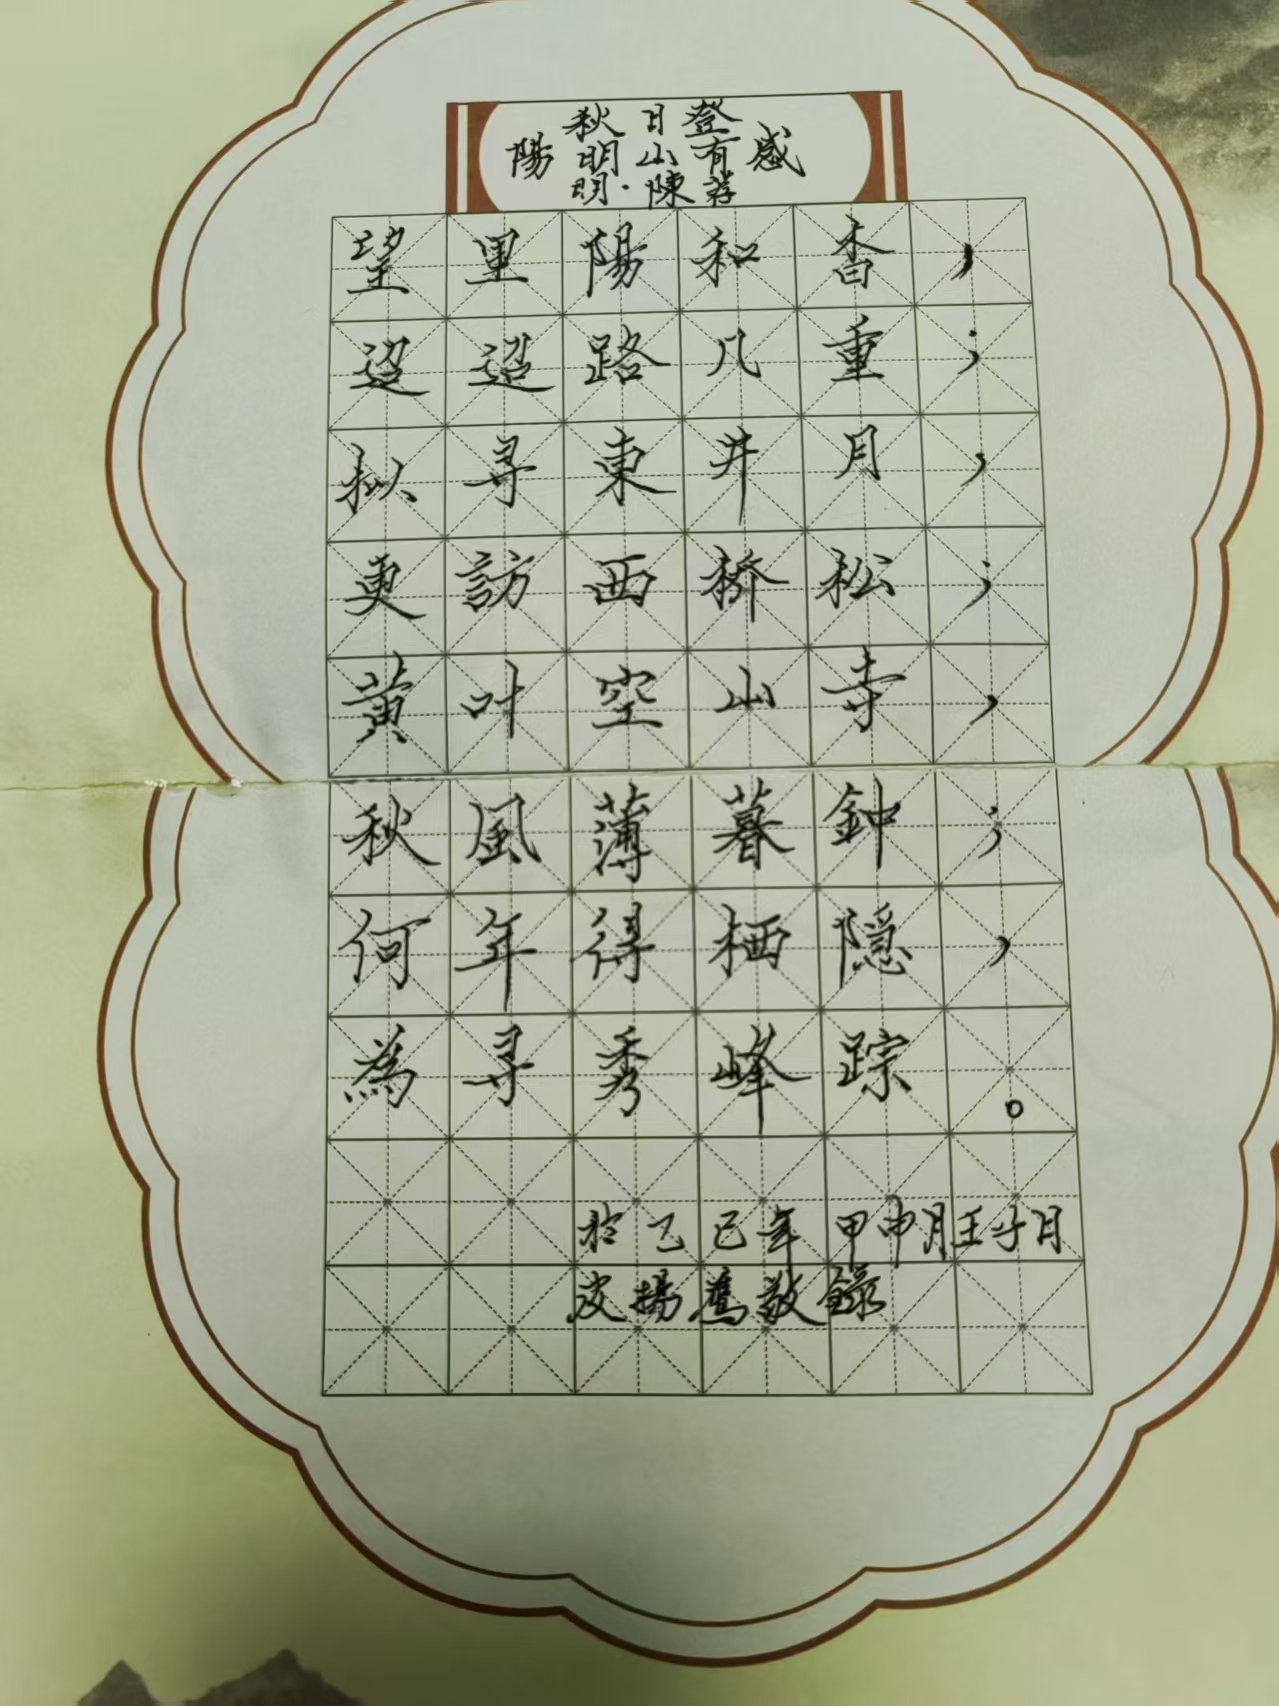 秋日登
陽明山有感
明·陳荐
望里陽和杳，
迢迢路几重；
拟寻東井月，
更訪西桥松；
黄叶空山寺，
秋風薄暮鈡；
何年得栖隐，
為寻秀峰踪。
於乙巳年甲申月壬子日
皮揚鷹敬錄